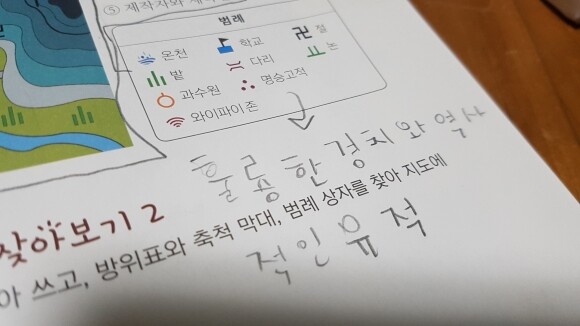 ⑤ 제작자와 제작
범례
온천 학교 절
밭 다리 논
과수원 명승고적
와이파이 존
훌륭한 경치와 역사
적인 유적
찾아보기 2
아 쓰고, 방위표와 축척 막대, 범례 상자를 찾아 지도에